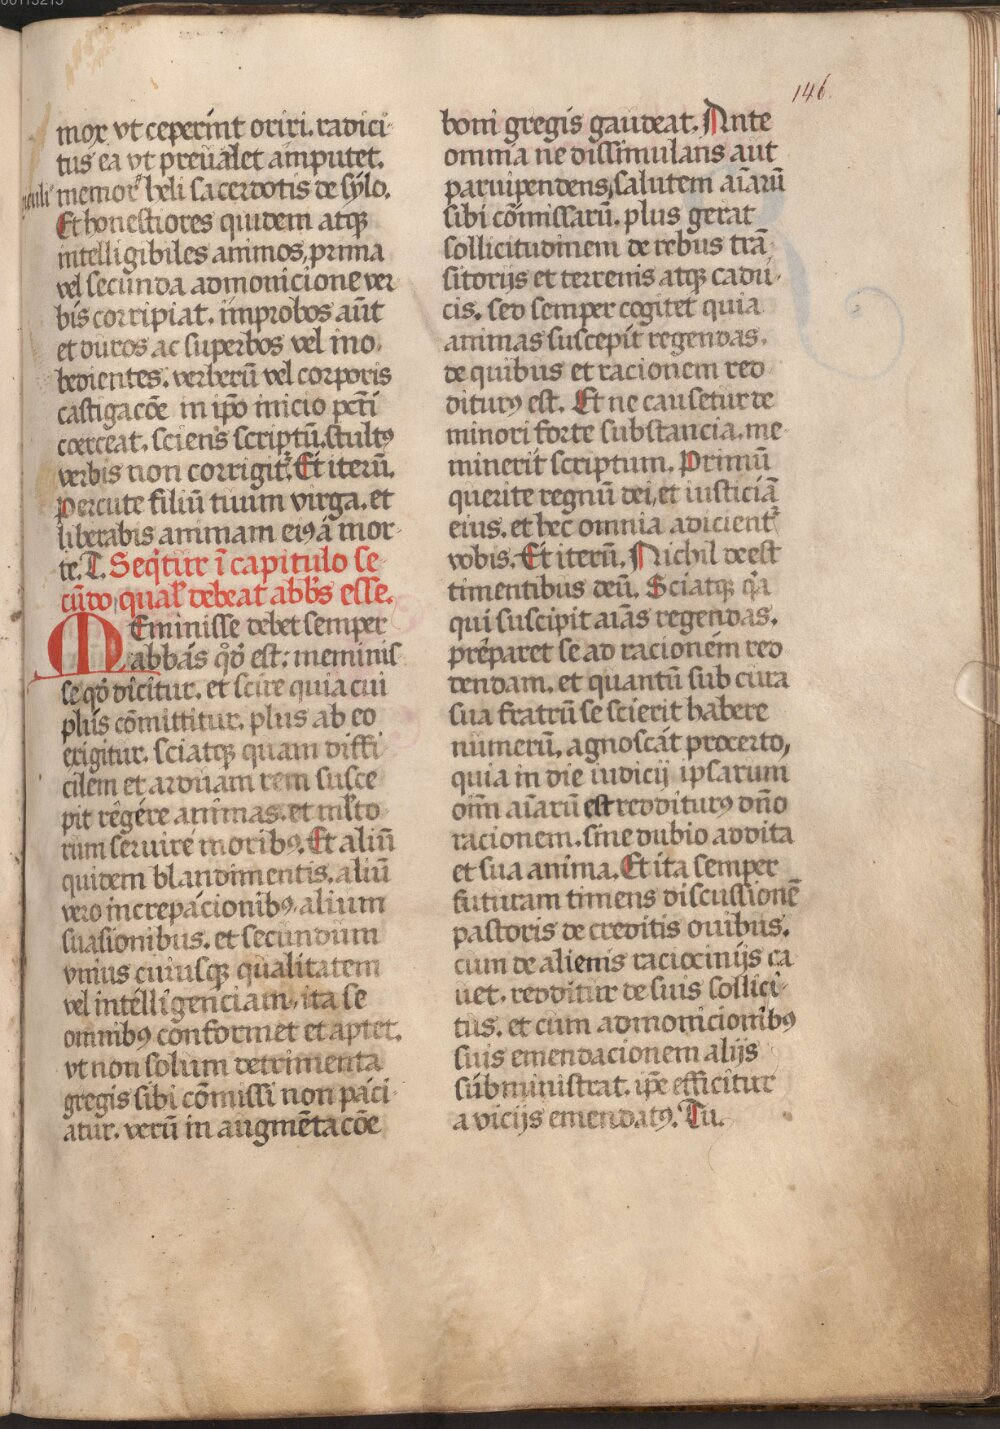 146.
mox vt ceperint oriri. radici-
tus ea vt preualet amputet.
memor heli sacerdotis de sylo.
Et honestiores quidem atqꝫ
intelligibiles animos, prima
vel secunda admonicione ver
bis corripiat. improbos aūt
et duros ac superbos vel ino
bedientes. verberū vel corporis
castigacōe in ip̄o inicio pctī
coerceat. sciens scriptū. stultꝰ
verbis non corrigit᷑. Et iterū.
Percute filiū tuum virga. et
liberabis animam eiꝰ a mor-
te. T. Seqͥtur ī capitulo se
cūdo, qual᷑ debeat abb̄s esse.
Eminisse debet semper
abbas qd̓ est: meminis
se qd̓ dicitur. et scire quia cui
plus cōmittitur. plus ab eo
exigitur. sciatqꝫ quam diffi
cilem et arduam rem susce
pit regere animas. et ml̓to
rum seruire moribꝰ. Et aliū
quidem blandimentis. aliū
vero increpacionibꝰ. alium
suasionibus. et secundum
vnius cuiusqꝫ qualitatem
vel intelligenciam. ita se
omnibꝰ conformet et aptet.
vt non solum detrimenta
gregis sibi cōmissi non paci-
atur. verū in augmētacōe
boni gregis gaudeat. Ante
omnia ne dissimulans aut
paruipendens, salutem aīarū
sibi cōmissarū. plus gerat
sollicitudinem de rebus trā-
sitorijs et terrenis atqꝫ cadu-
cis. sed semper cogitet quia
animas suscepit regendas.
de quibus et racionem red
diturꝰ est. Et ne causetur de
minori forte substancia. me-
minerit scriptum. Primū
querite regnū dei, et iusticiā
eius. et hec omnia adicient᷑
vobis. Et iterū. Nichil deest
timentibus deū. Sciatqꝫ qͥa
qui suscipit aīas regendas.
preparet se ad racionem red
dendam. et quantū sub cura
sua fratrū se scierit habere
numerū, agnoscat procerto,
quia in die iudicij ipsarum
om̄ aīarū est redditurꝰ dn̄o
racionem. sine dubio addita
et sua anima. Et ita semper
futuram timens discussionē
pastoris de creditis ouibus.
cum de alienis raciocinijs ca
uet. redditur de suis sollici-
tus. et cum admonicionibꝰ
suis emendacionem alijs
subministrat. ip̄e efficitur
a vicijs emendatꝰ. Tu.